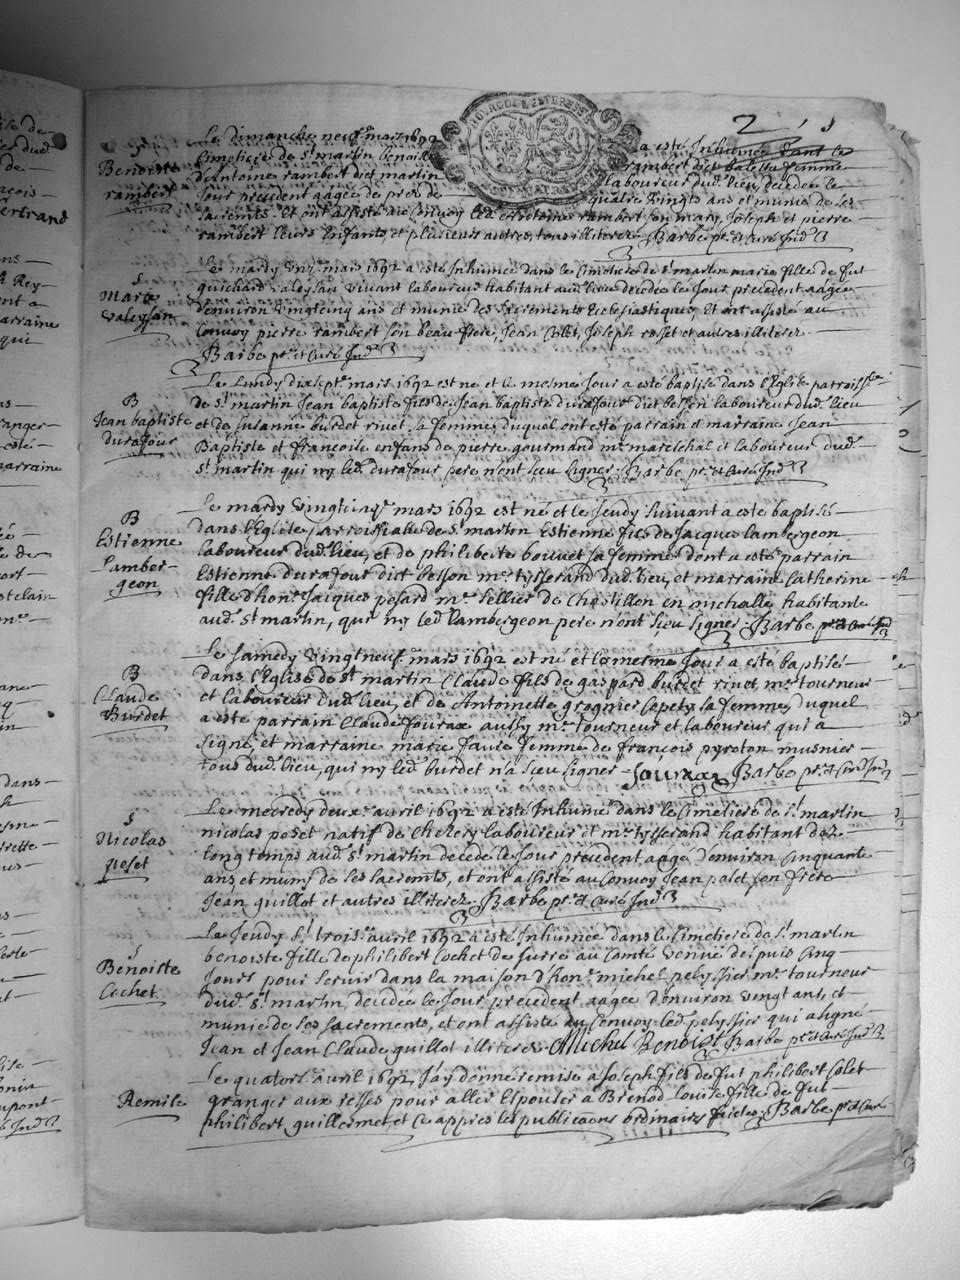 2
S
Benoiste
rambert
Le dimanche neuf.e mars 1692 a esté Inhumée dans le
Cimetiere de st martin benoiste rambert dict balette femme
de Antoine rambert dict martin laboureur dud. lieu decedée le
Jour precedent aagée de pres de quatre vingts ans et munie de ses
sacremts. et ont assisté au Convoy led. Antoine rambert son mary, Joseph et pierre
rambert leurs enfants, et plusieurs autres, tous illiterez. Barbe pr. et Curé Ind.
S
Marie
valeysan
Le mardy unz.e mars 1692 a esté Inhumée dans le Cimetiere de st martin marie fille de fut
guichard valeysan vivant laboureur habitant aud. lieu decedée le Jour precedent aagée
d'environ vingtcinq ans et munie des Sacrements Ecclesiastiques, Et ont assisté au
Convoy pierre rambert son beau frere, Jean Collet, Joseph rosset et autres illiterez
Barbe pr. et Curé Ind.
B
Jean baptiste
durafour
Le Lundy dixsept.e mars 1692 est né et le mesme Jour a esté baptisé dans l'Eglise parroissle.
de st. martin Jean baptiste fils de Jean baptiste durafour dict besson laboureur dud. lieu
et de susanne burdet rivet, sa femme, duquel ont esté parrain et marraine Jean
Baptiste et francoise enfans de pierre gourmand me. mareschal et laboureur dud.
st. martin qui ny led. durafour pere n'ont sceu signer. Barbe pr. et Curé Ind.
B
Estienne
Lamber-
geon
Le mardy vingtcinq.e mars 1692 est né et le Jeudy suivant a esté baptisé
dans l'Eglise parroissialle de st. martin Estienne fils de Jacques lambergeon
laboureur dud. lieu, et de philiberte bouvet sa femme, dont a esté parrain
Estienne durafour dict besson me. tysserand dud. lieu, et marraine Catherine
fille d'hon.e Jacques pesard me. sellier de Chastillon en michalle habitante
aud. st. martin, qui ny led. Lambergeon pere n'ont sceu signer. Barbe pr. et Curé Ind.
B
Claude
Burdet
Le samedy vingtneuf.e mars 1692 est né et le mesme Jour a esté baptisé
dans l'Eglise de st. martin Claude fils de gaspard burdet rivet me. tourneur
et laboureur dud. lieu, et de Antoinette grognier sa femme, duquel
a esté parrain Claude fourax aussy me. tourneur et laboureur qui a
signé, et marraine marie favre femme de françois pyroton musnier
tous dud. lieu, qui ny led. burdet n'a sceu signer. fourax Barbe pr. et Curé Ind.
S
Nicolas
poset
Le mecredy deux.e avril 1692 a esté Inhumé dans le Cimetiere de st. martin
nicolas poset natif de Chezery laboureur et me. tysserand habitant dez
long temps aud. st. martin decedé le Jour precedent aagé d'environ cinquante
ans et muny de ses sacremts, et ont assisté au Convoy Jean polet son frere
Jean guillot et autres illiterez. Barbe pr. et Curé Ind.
S
Benoiste
Cochet
Le Jeudy trois.e avril 1692 a esté Inhumée dans le Cimetiere de st. martin
benoiste fille de philibert Cochet de surre au Comté venue despuis cinq
Jours pour servir dans la maison d'hon.e michel pelyssier me. tourneur
dud. st. martin decedée le Jour precedent, aagée d'environ vingt ans, et
munie de ses sacrements, et ont assisté au Convoy led. pelyssier qui a signé
Jean et Jean Claude guillot illiterez. Michel Benoist Barbe pr. et Curé Ind.
Remise
Le quators.e avril 1692, J'ay donné remise a Joseph fils de fut philibert Colet
granger aux reffes pour aller Espouser a Brenod Louise fille de fut
philibert guillermet et ce appres les publicaons ordinaires faictes. Barbe pr. et Curé